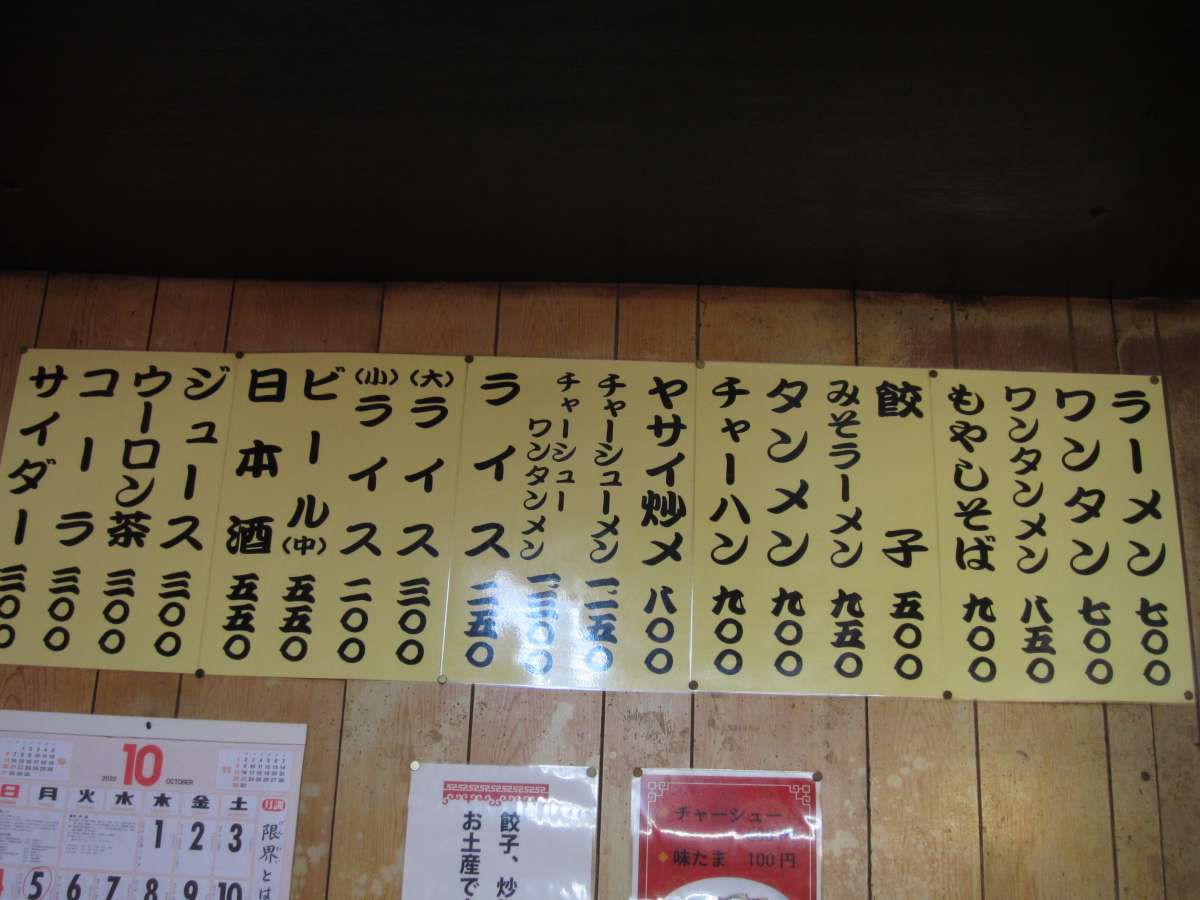 ラーメン 七〇〇
ワンタン 七〇〇
ワンタンメン 八五〇
もやしそば 九〇〇
餃子 五〇〇
みそラーメン 九五〇
タンメン 九〇〇
チャーハン 九〇〇
ヤサイ炒メ 八〇〇
チャーシューメン 一一五〇
チャーシュー
ワンタンメン 一三〇〇
ライス 二五〇
(大)ライス 三〇〇
(小)ライス 二〇〇
ビール(中) 五五〇
日本酒 五五〇
ジュース 三〇〇
ウーロン茶 三〇〇
コーラ 三〇〇
サイダー 三〇〇
10
OCTOBER
日 月 火 水 木 金 土
1 2 3
4 5 6 7 8 9 10
限界とは
餃子、炒
お土産で
チャーシュー
味たま 100円